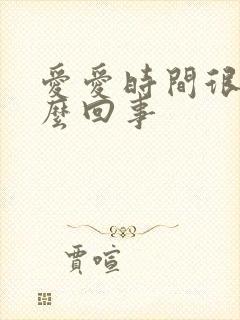 愛愛時間很
麼回事
賈喧